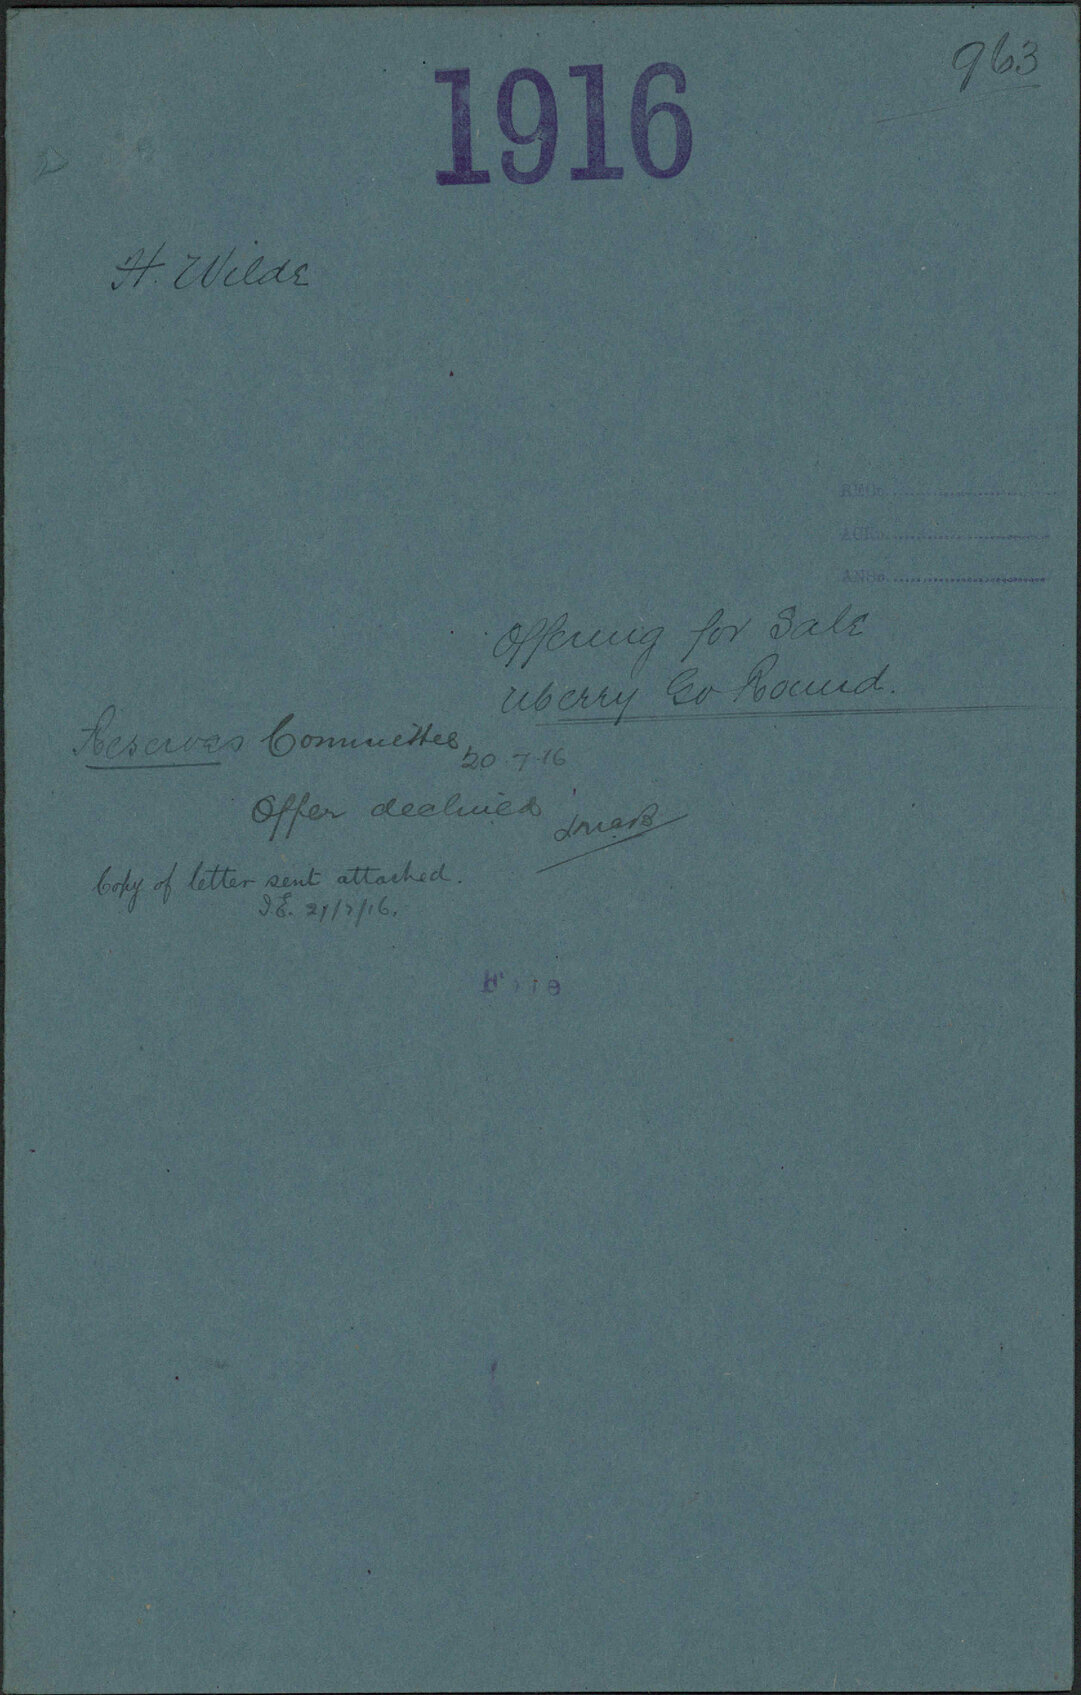 963
1916
H. Wilde
Offering for Sale
Merry Go Round.
Reserves Committee
20-7-16
Offer declined
Copy of letter sent attached.
I.E. 21/7/16.
File